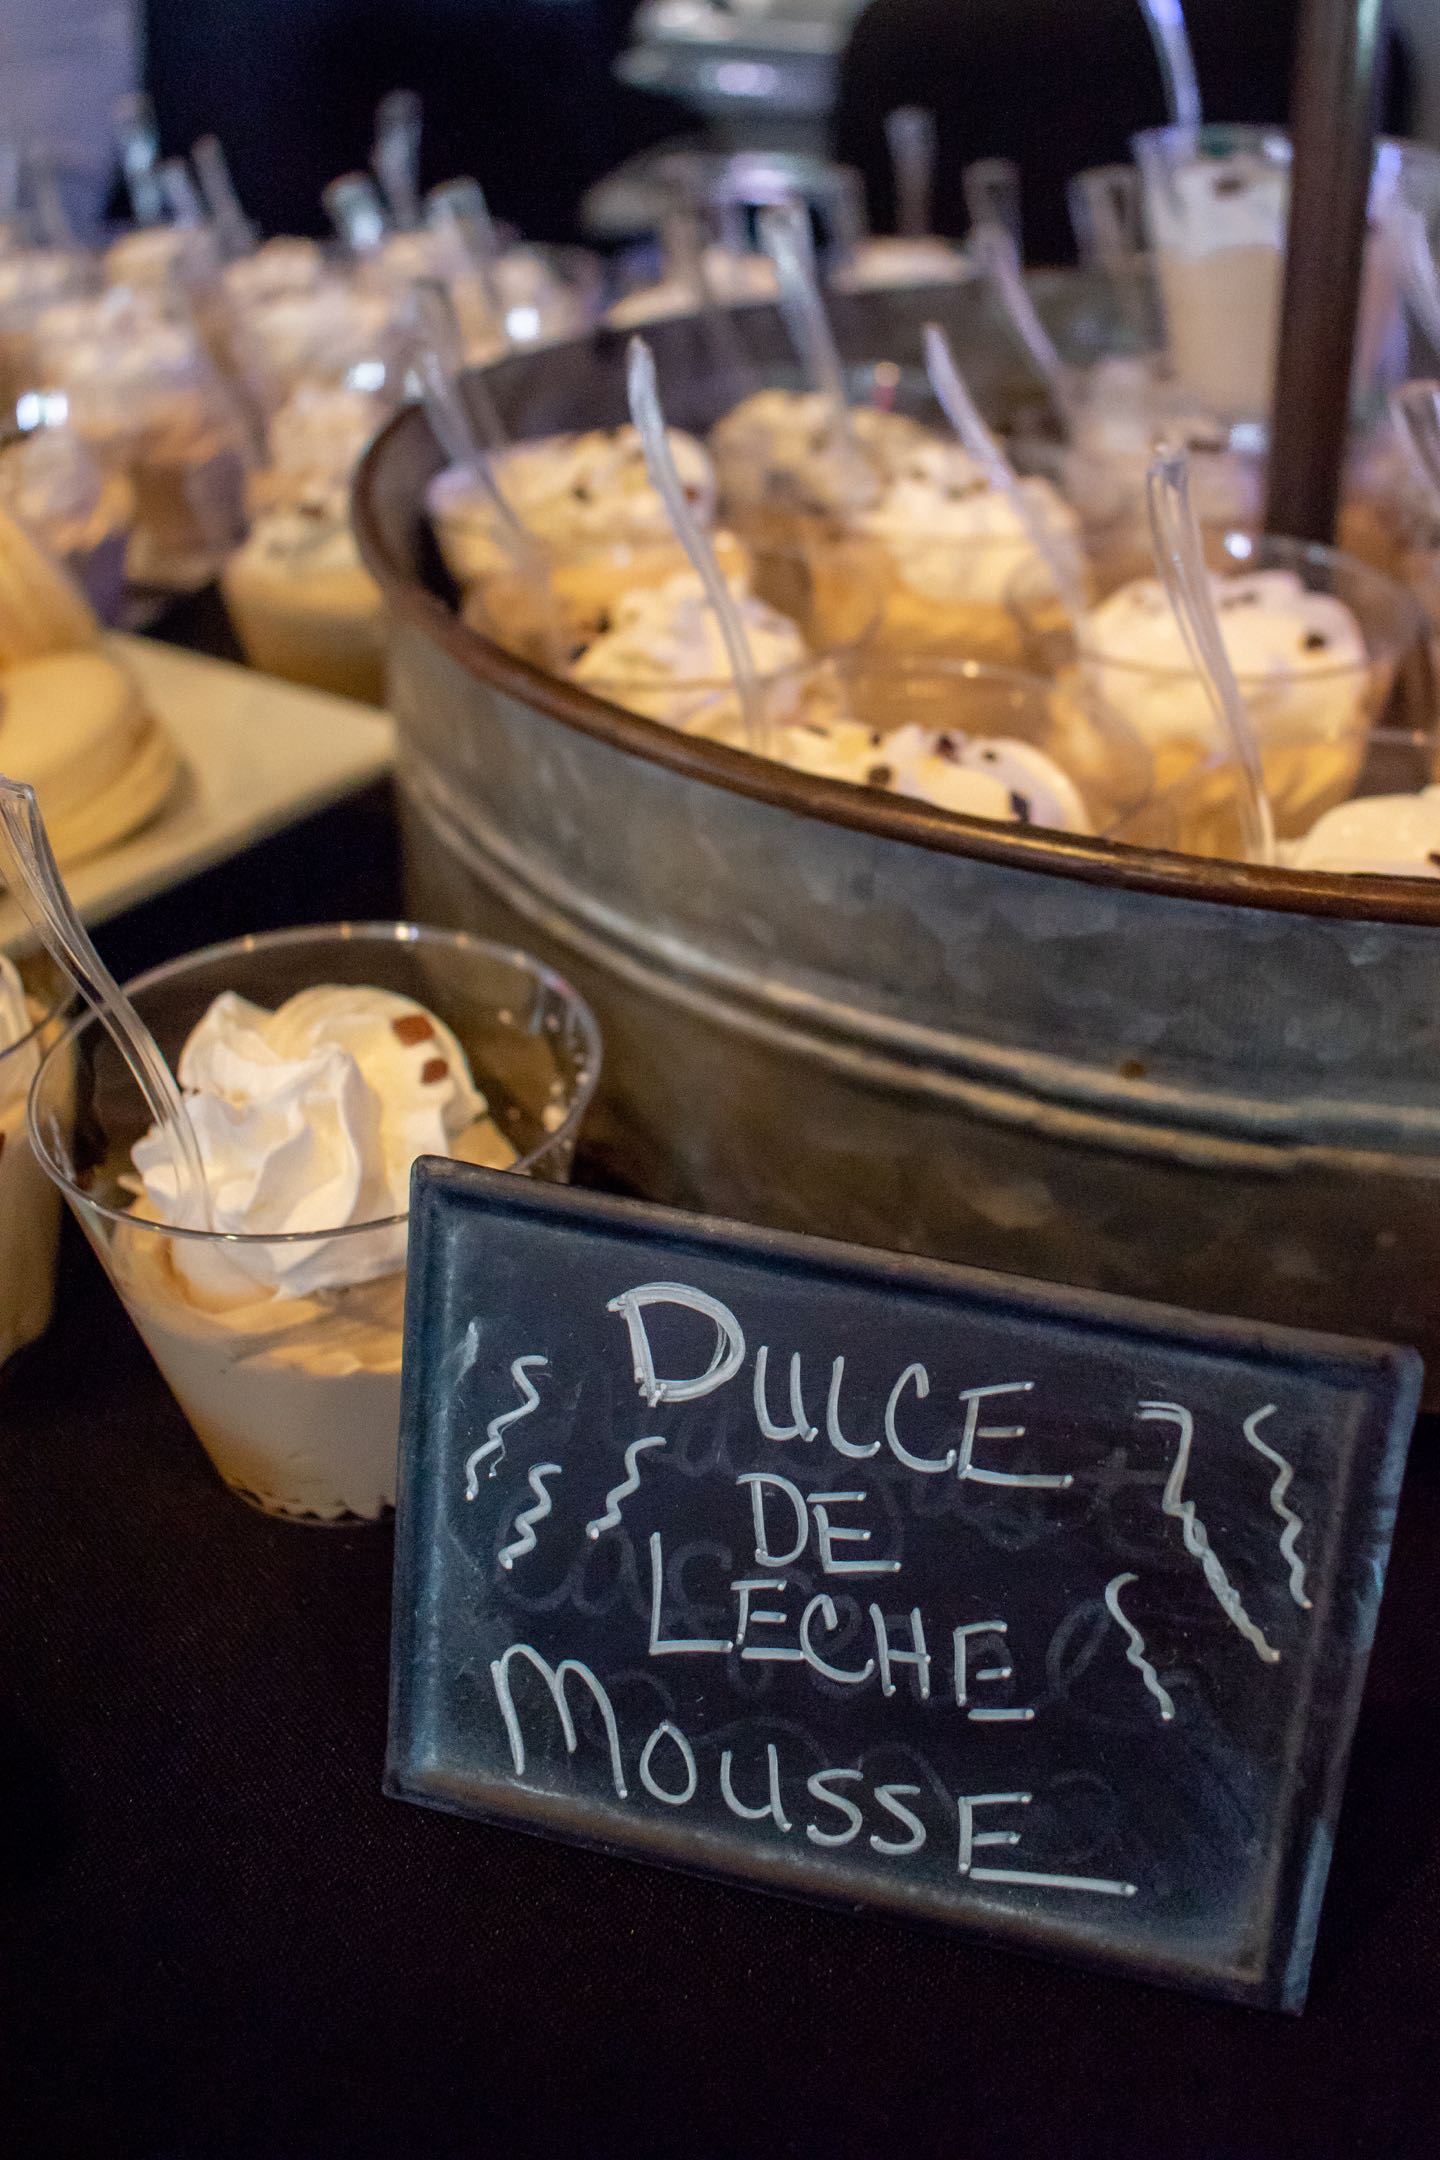 DULCE
DE
LECHE
MOUSSE